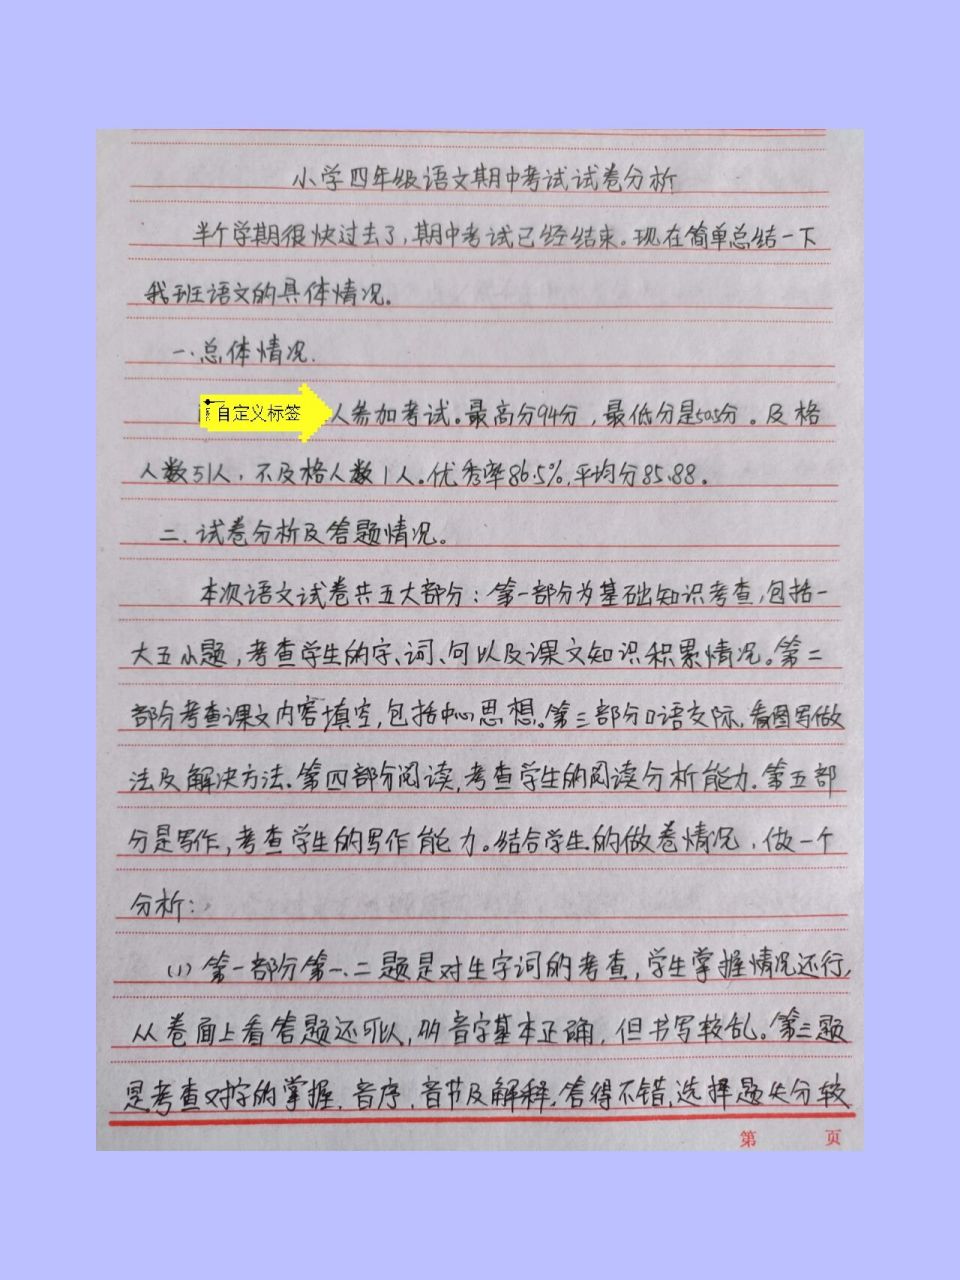 小学四年级语文期中考试试卷分析
半个学期很快过去了,期中考试已经结束。现在简单总结一下
我班语文的具体情况。
一.总体情况.
自定义标签 人参加考试。最高分94分，最低分是50.5分。及格
人数51人，不及格人数1人。优秀率86.5%,平均分85.88。
二.试卷分析及答题情况。
本次语文试卷共五大部分：第一部分为基础知识考查,包括一
大五小题,考查学生的字、词、句以及课文知识积累情况。第二
部分考查课文内容填空,包括中心思想。第三部分口语交际,看图写做
法及解决方法.第四部分阅读,考查学生的阅读分析能力.第五部
分是写作,考查学生的写作能力。结合学生的做卷情况，做一个
分析:
(1)第一部分第一、二题是对生字词的考查,学生掌握情况还行,
从卷面上看答题还可以,的音字基本正确,但书写较乱。第三题
是考查对字的掌握.音序,音节及解释.答得不错,选择题失分较
第 页